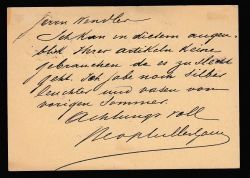 Herrn Wendler
Ich kan in diesem augen-
blick Ihrer artikeln keine
gebrauchen da es zu schlecht
geht. Ich habe noch silber
leuchter und vasen von
vorigen Sommer.
Achtungsvoll